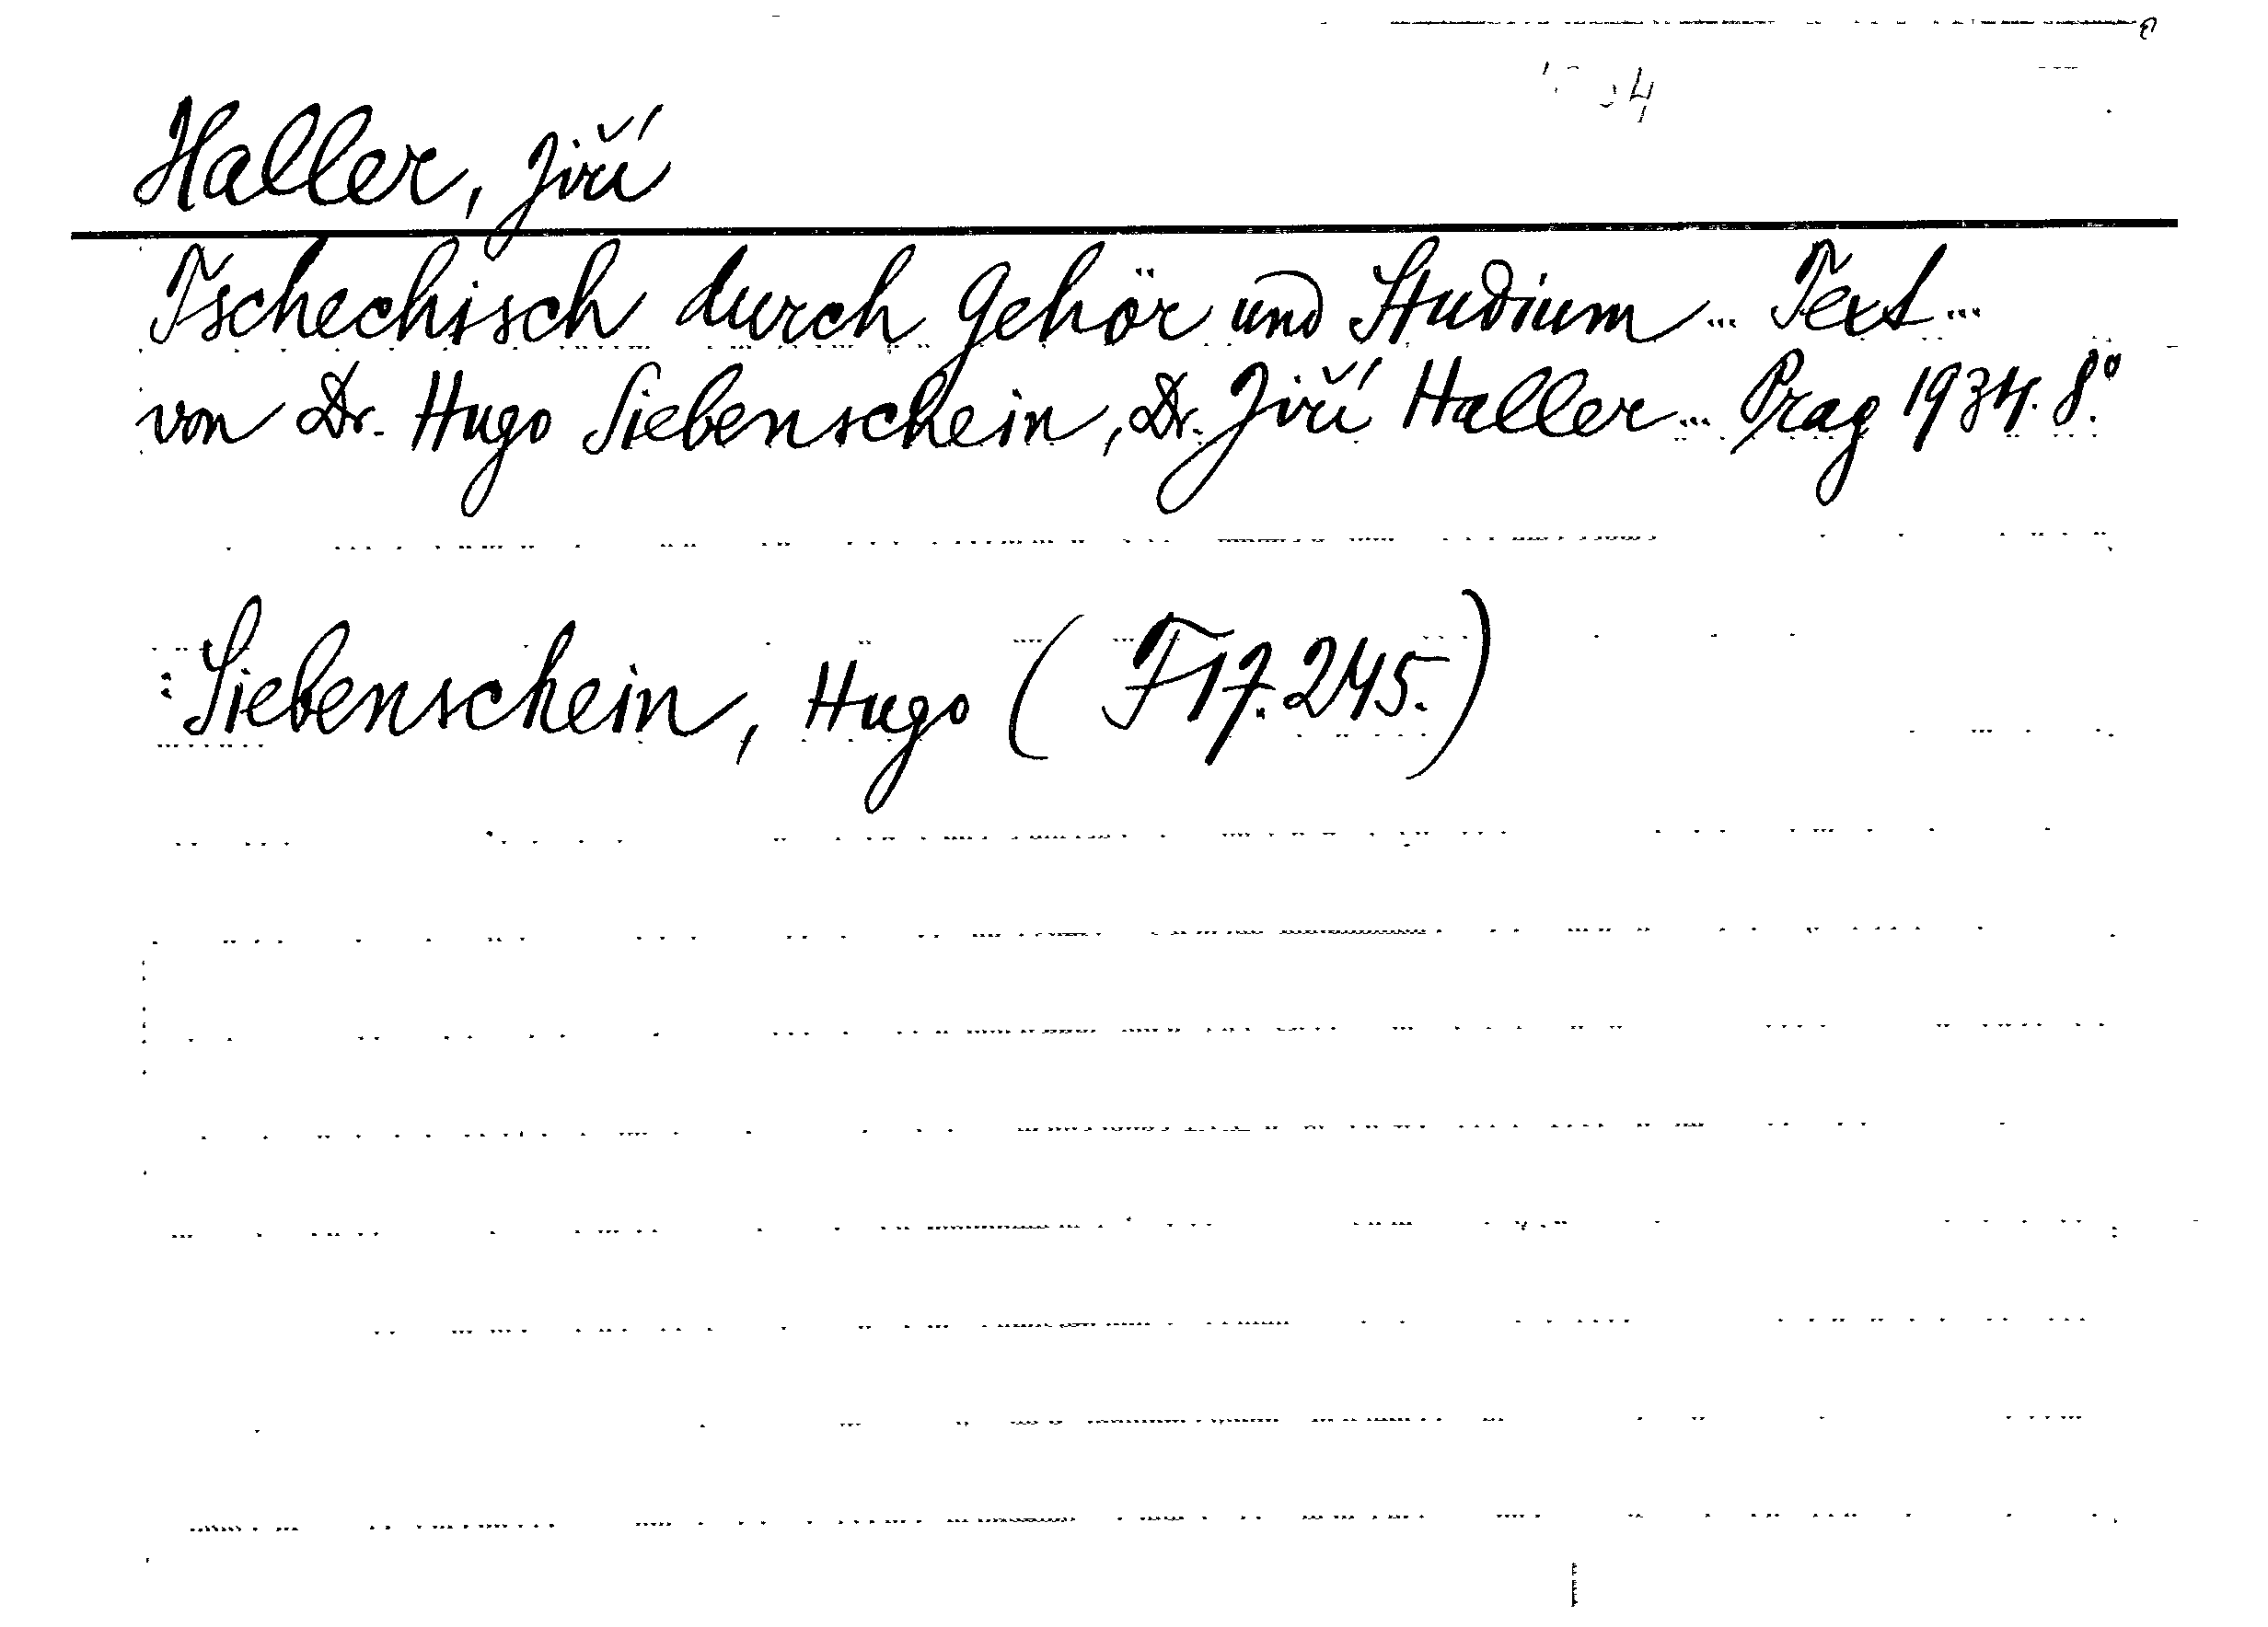 Haller, Jiří
Tschechisch durch Gehör und Studium ... Text ...
von Dr. Hugo Siebenschein, Dr. Jiří Haller ... Prag 1934. 8°.
: Siebenschein, Hugo ( F 17.245. )